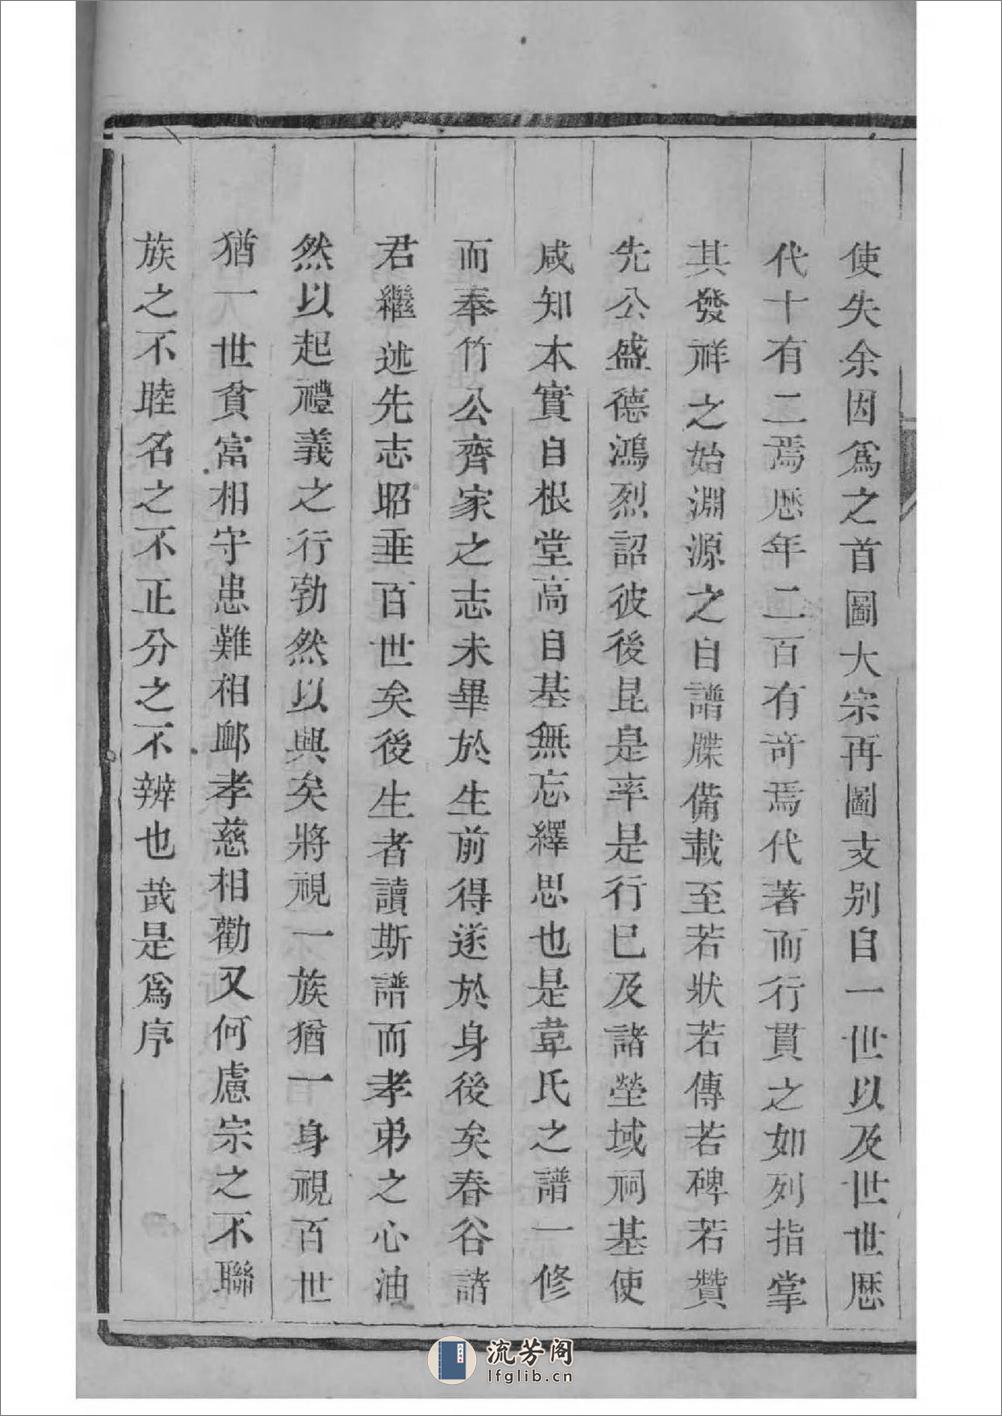 使失余因爲之首圖大宗再圖支别自一世以及世世歴
代十有二焉歴年二百有竒焉代著而行貫之如列指掌
其發祥之始淵源之自譜牒備載至若狀若傳若碑若贊
先公盛德鴻烈詔彼後昆是率是行巳及諸塋域祠基使
咸知本實自根堂高自基無忘繹思也是韋氏之譜一修
而奉竹公齊家之志未畢於生前得遂於身後矣春谷諸
君繼述先志昭垂百世矣後生者讀斯譜而孝弟之心油
然以起禮義之行勃然以興矣將視一族猶一身視百世
猶一世貧富相守患難相卹孝慈相勸又何慮宗之不聯
族之不睦名之不正分之不辨也哉是爲序
流芳阁
lfglib.cn